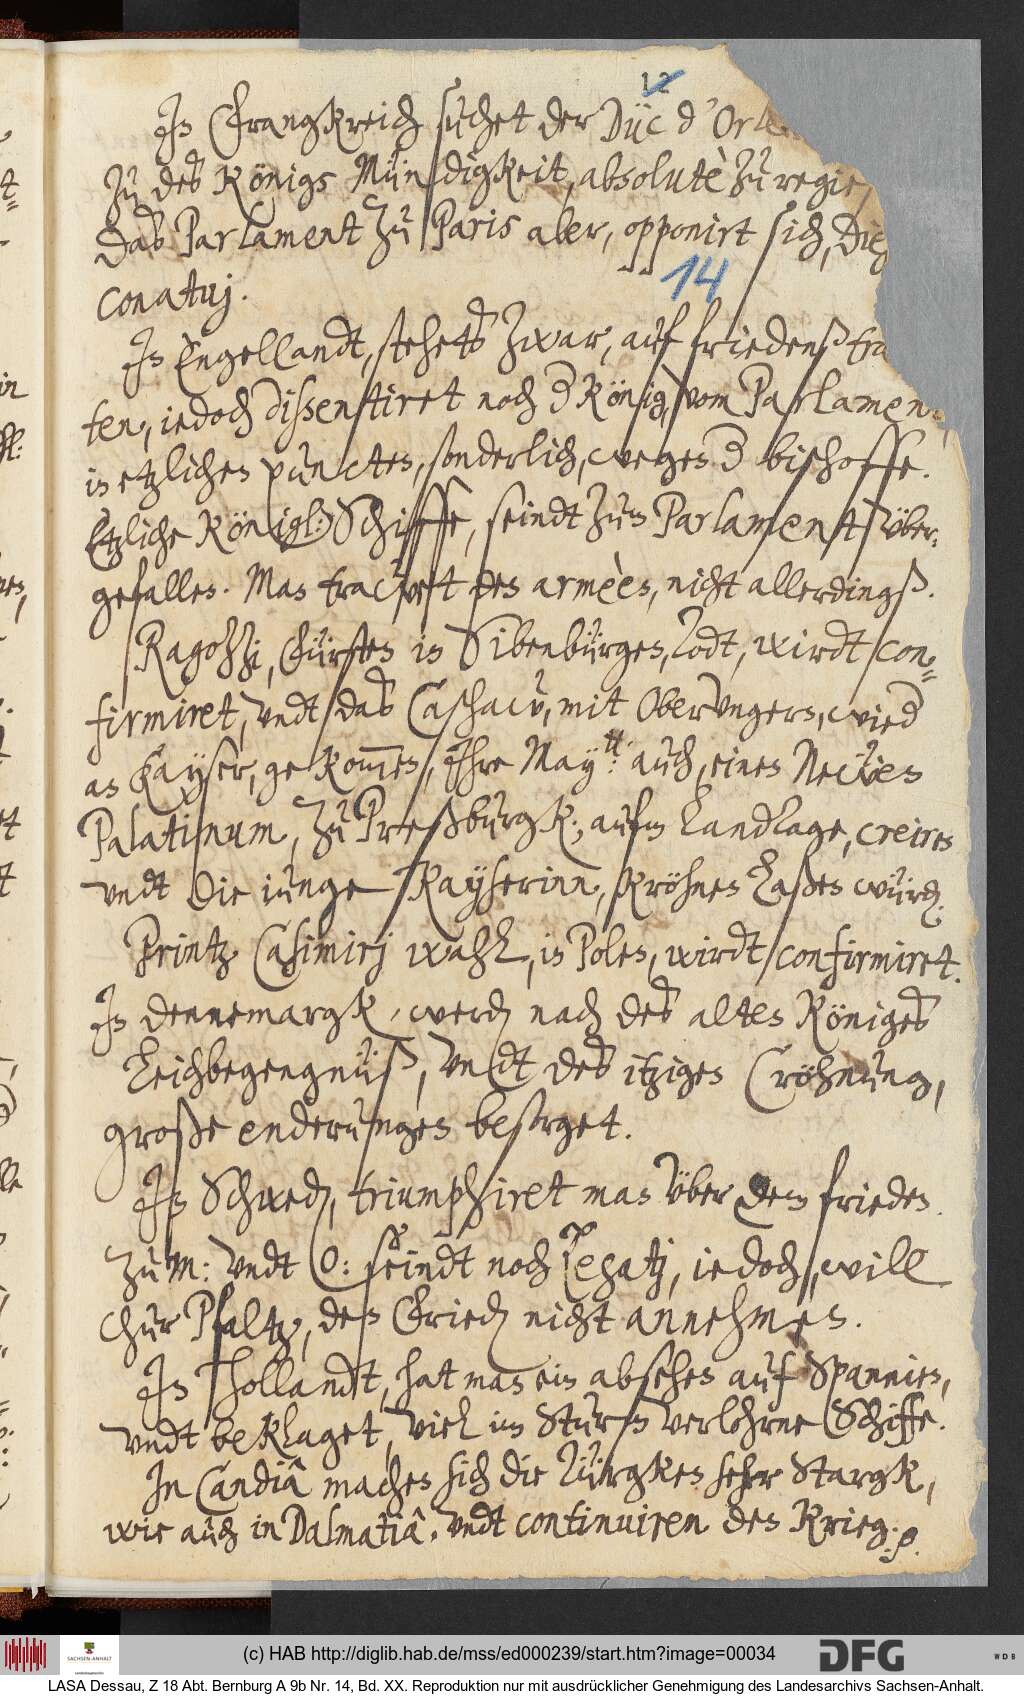 12
In Franckreich suchet der Düc d'Orle
zu des Königs Mündigkeit, absolutè zu regie
das Parlament zu Paris aber, opponirt sich, die
conatuj.
14
In Engellandt, stehets zwar, auf friedenß tra
ten, iedoch dissentiret noch der König, vom Parlamen
in etzlichen puncten, sonderlich, wegen der bischoffe.
Etzliche Königl: Schiffe, seindt zum Parlament über-
gefallen. Man trawet den armèen, nicht allerdingß.
Ragozzi, Fürsten in Sibenbürgen, Todt, wirdt con-
firmiret, undt das Caschaw, mit Oberungern, wied
an Kayser, gekommen, Ihre May.tt: auch, einen Newen
Palatinum, zu Preßburgk, aufm Landtage, creiren
undt die iunge Kayserinn, kröhnen laßen würde.
Printz Casimirj wahl, in Polen, wirdt confirmiret.
In Dennemargk, werden nach des alten Königes
Leichbegengnüß, undt des itzigen Cröhnung,
große enderungen besorget.
In Schweden, triumphiret man über dem frieden.
Zu M: undt O: seindt noch Legatj, iedoch, will
Chur Pfaltz, den Frieden nicht annehmen.
In Hollandt, hat man ein absehen auf Spannien,
undt beklaget, viel im Sturm verlohrne Schiffe.
In Candiâ machen sich die Türgken sehr starck,
wie auch in Dalmatiâ. undt continuiren den Krieg. p.
(c) HAB http://diglib.hab.de/mss/ed000239/start.htm?image=00034
SACHSEN-ANHALT
DFG
WDB
LASA Dessau, Z 18 Abt. Bernburg A 9b Nr. 14, Bd. XX. Reproduktion nur mit ausdrücklicher Genehmigung des Landesarchivs Sachsen-Anhalt.